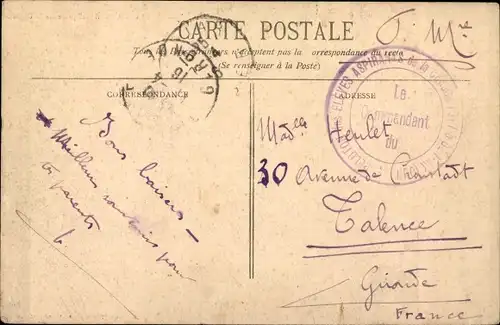 CARTE POSTALE
Tous les Pays étrangers n'acceptent pas la correspondance au recto
(Se renseigner à la Poste)
F. M
CORRESPONDANCE
ADRESSE
ELÈVES ASPIRANTS
Le
Commandant
du
Bons baisers —
Meilleurs souvenirs pour
tes parents
Madelle
30 Avenue de Cronstadt
Talence
Gironde
France